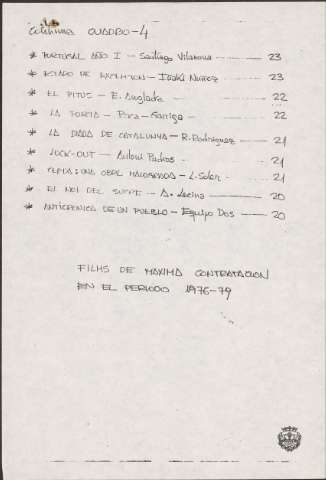 Columna CUADRO-4
* PORTUGAL AÑO I - Santiago Vilanova ------ 23
* ESTADO DE EXCEPCION - Iñaki Nuñez ------ 23
* EL PITUS - E. Anglada ------ 22
* LA TORTA - Pera - Garriga ------ 22
* LA DIADA DE CATALUNYA - R. Rodriguez ------ 21
* LOCK-OUT - Antoni Padros ------ 21
* UNA OBRA MALOGRADA - L. Soler ------ 21
* EL NOI DEL SUCRE - A. Lecina ------ 20
* ANTICRONICA DE UN PUEBLO - Equipo Dos ------ 20
FILMS DE MAXIMA CONTRATACION
EN EL PERIODO 1976-79